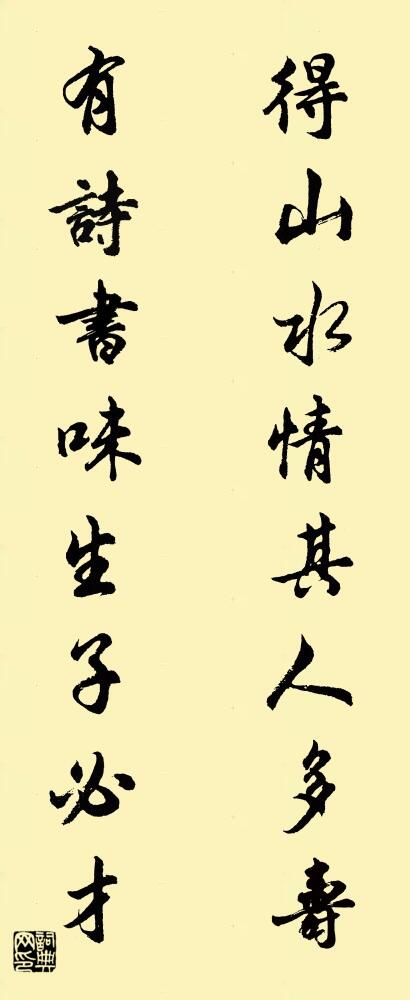 得山水情其人多壽
有詩書味生子必才
詞典網印